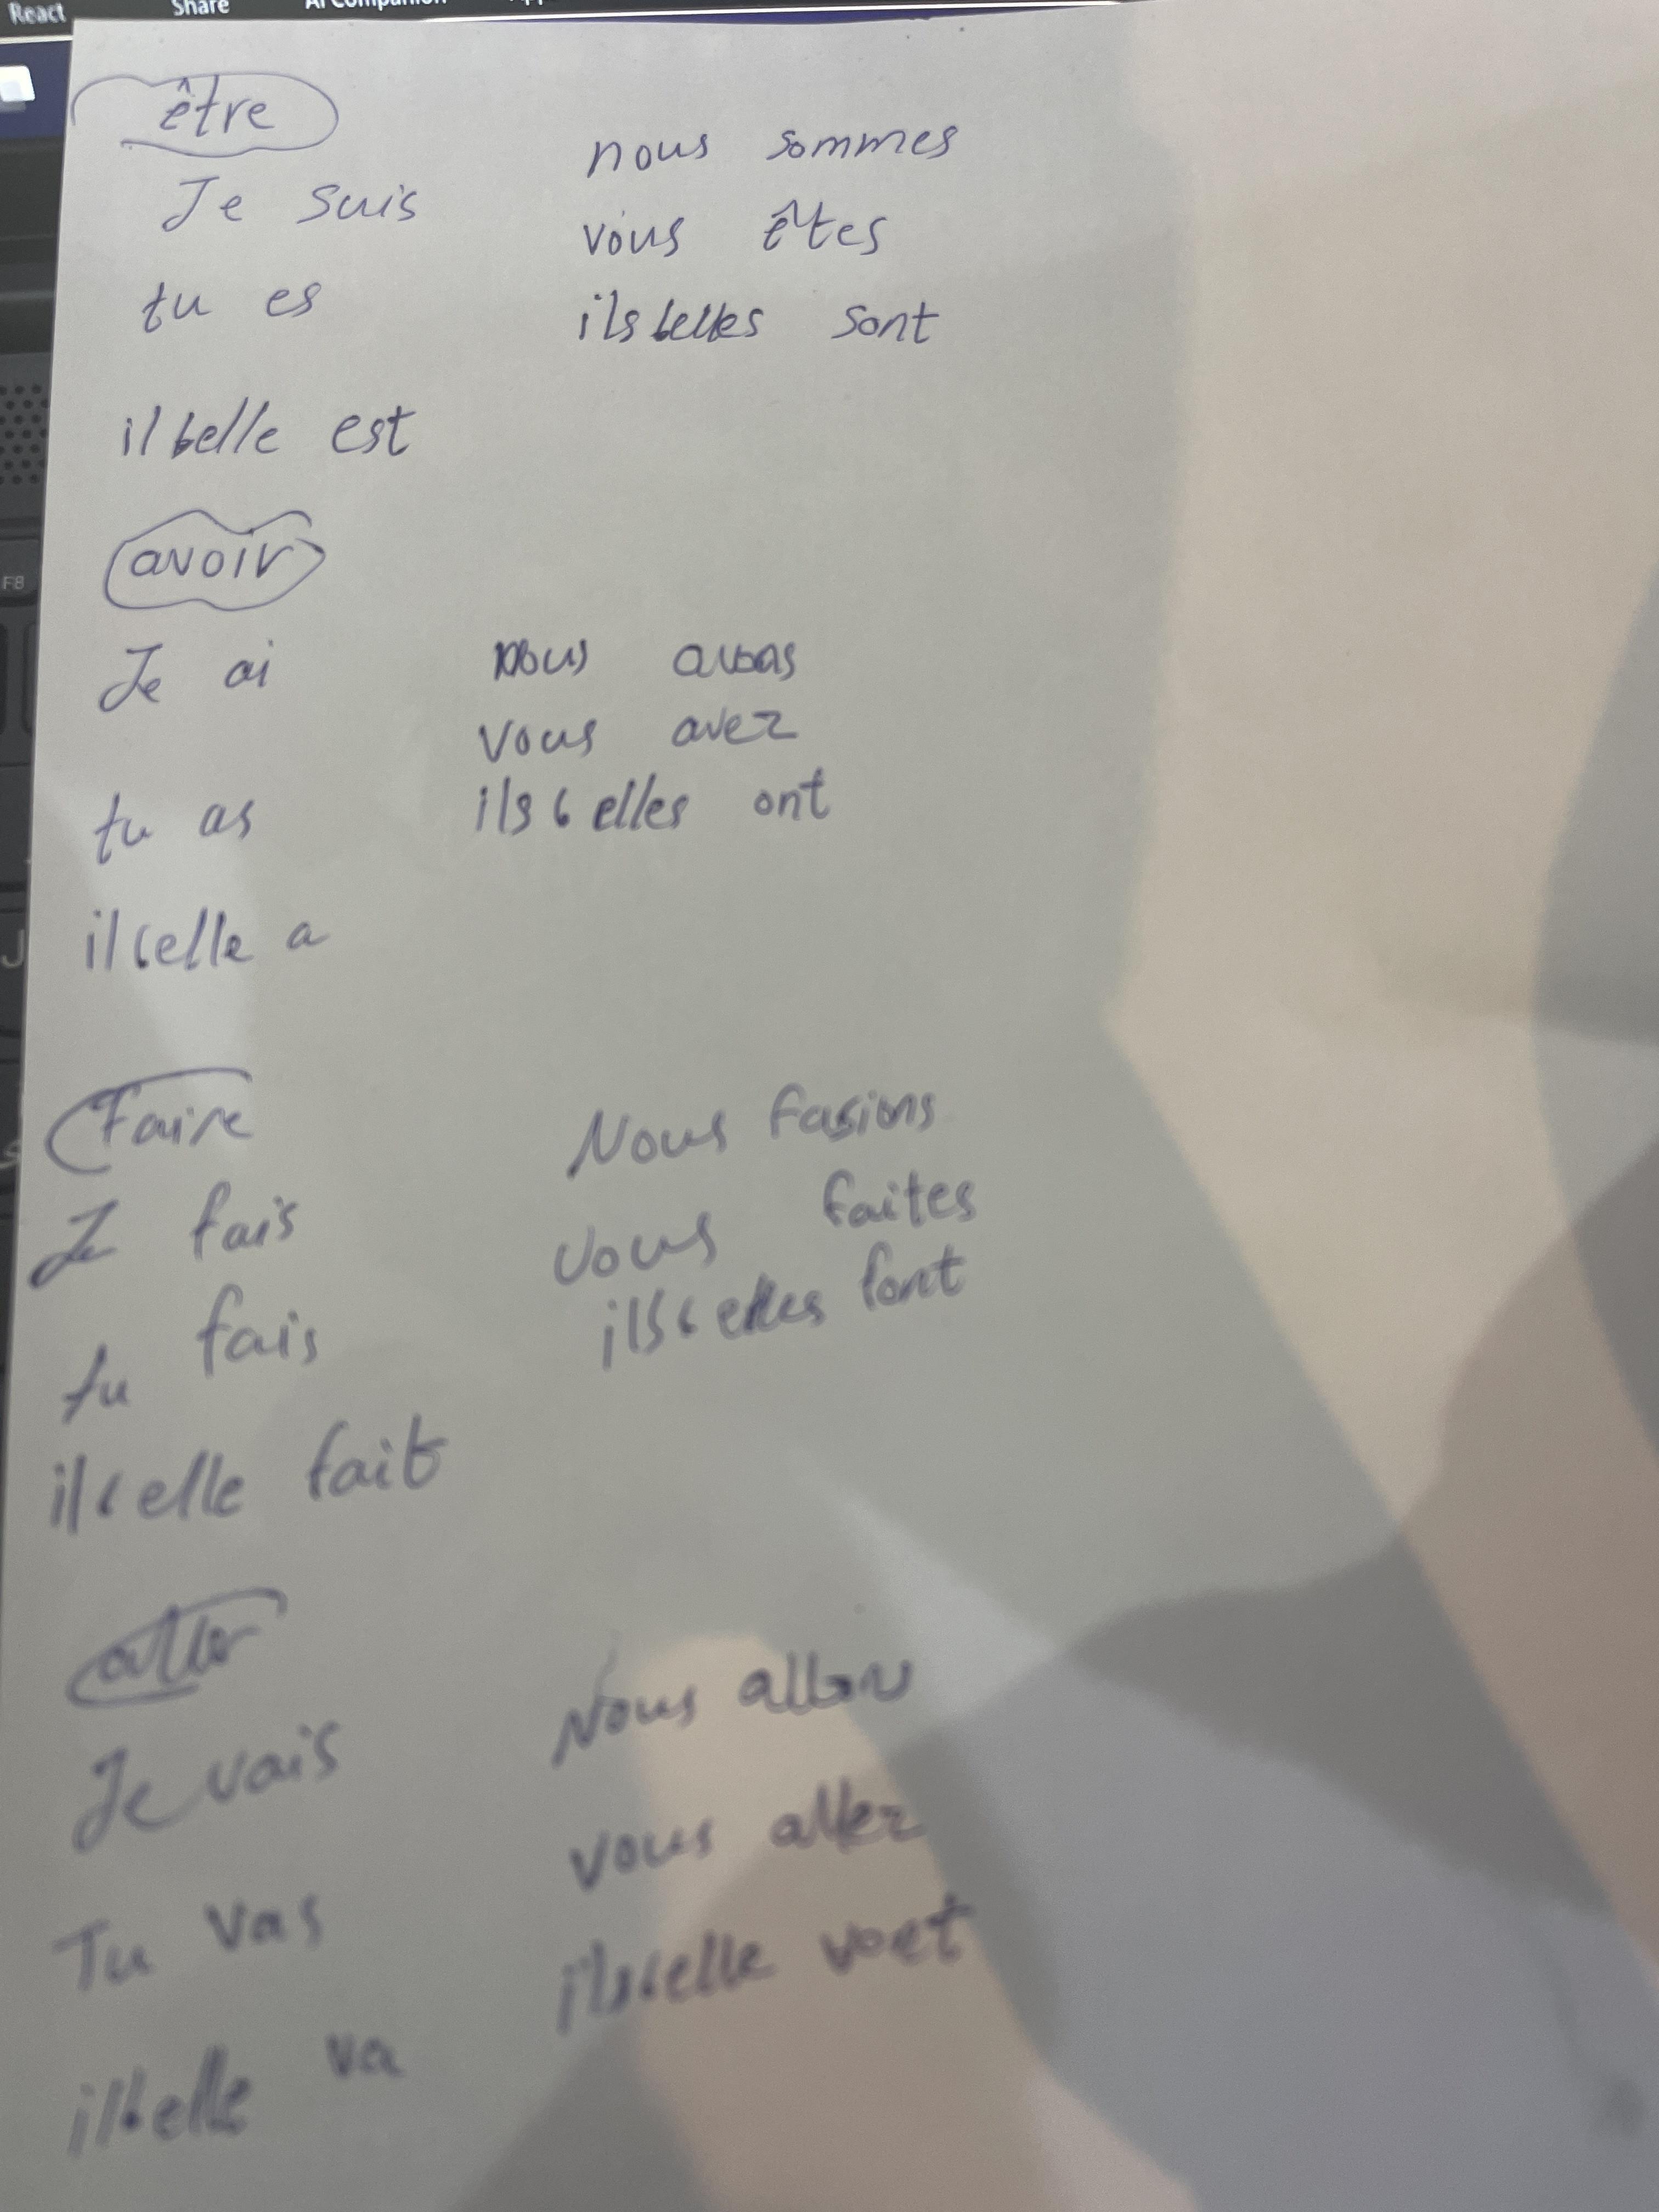 React Share AI Companion
être
Je suis
tu es
il & elle est
nous sommes
vous êtes
ils & elles sont
avoir
F8
Je ai
tu as
il & elle a
nous avons
vous avez
ils & elles ont
J
Faire
Je fais
tu fais
il & elle fait
Nous fasions
vous faites
ils & elles font
aller
Je vais
Tu vas
il & elle va
Nous allons
vous allez
ils & elle vont